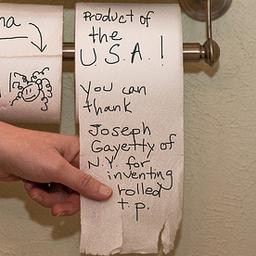 na
Product of
the
U.S.A.!
you can
thank
Joseph
Gayetty of
N.Y. for
inventing
rolled
t.p.